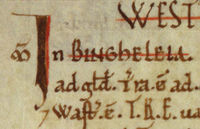 WEST
In BINGHELEIA.
ad gld. Tra. ē ad.
Wast. ē.